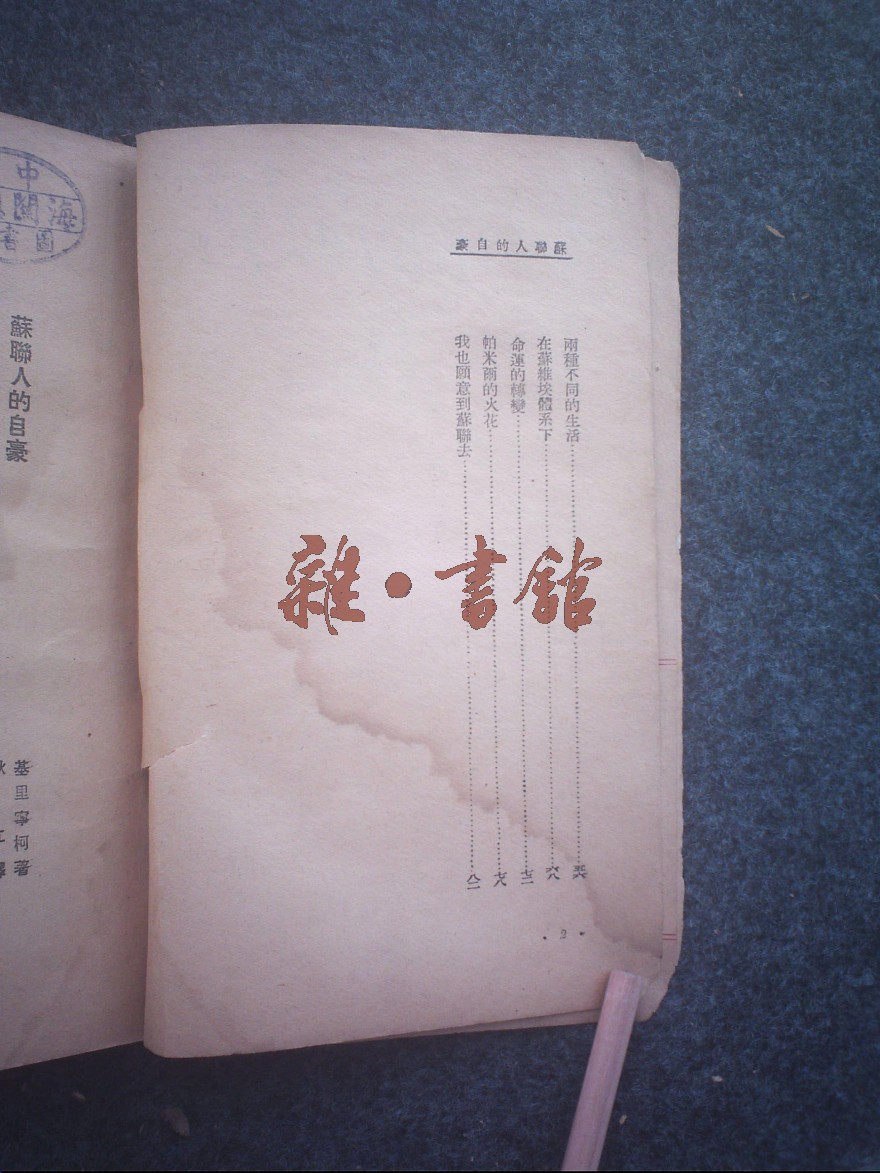 蘇聯人的自豪
兩種不同的生活
在蘇維埃體系下……六八
命運的轉變……七二
帕米爾的火花……七八
我也願意到蘇聯去……八二
• 2 •
雜•書館
中
海關
圖書
蘇聯人的自豪
基里寧柯著